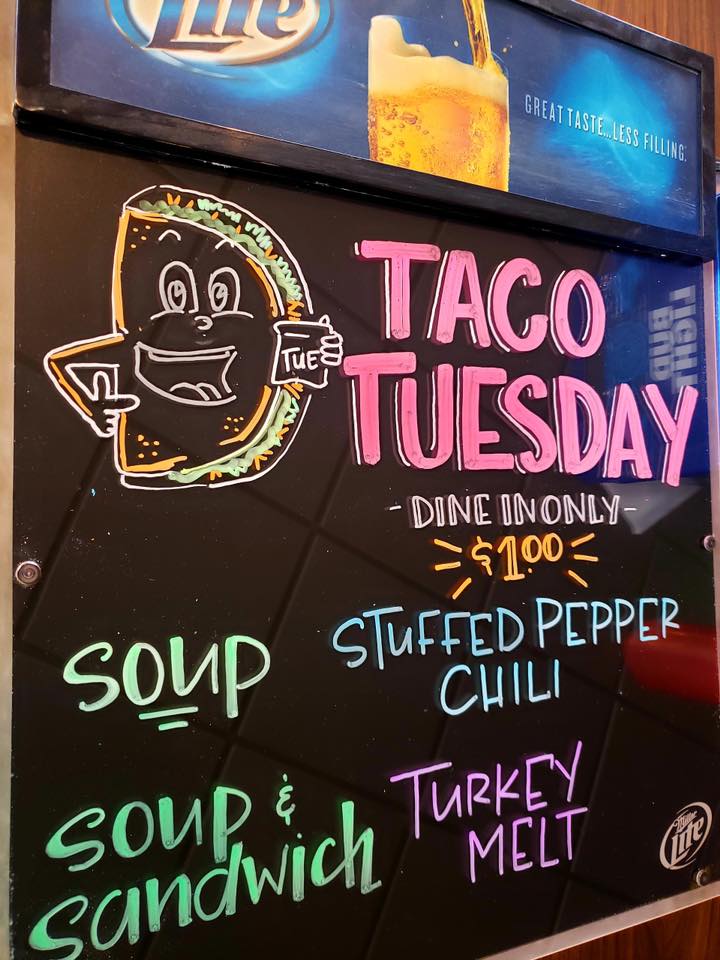 Lite
GREAT TASTE...LESS FILLING.
TACO
TUESDAY
TUE
- DINE IN ONLY -
$1.00
SOUP
STUFFED PEPPER
CHILI
SOUP &
SANDWICH
TURKEY
MELT
Miller
Lite